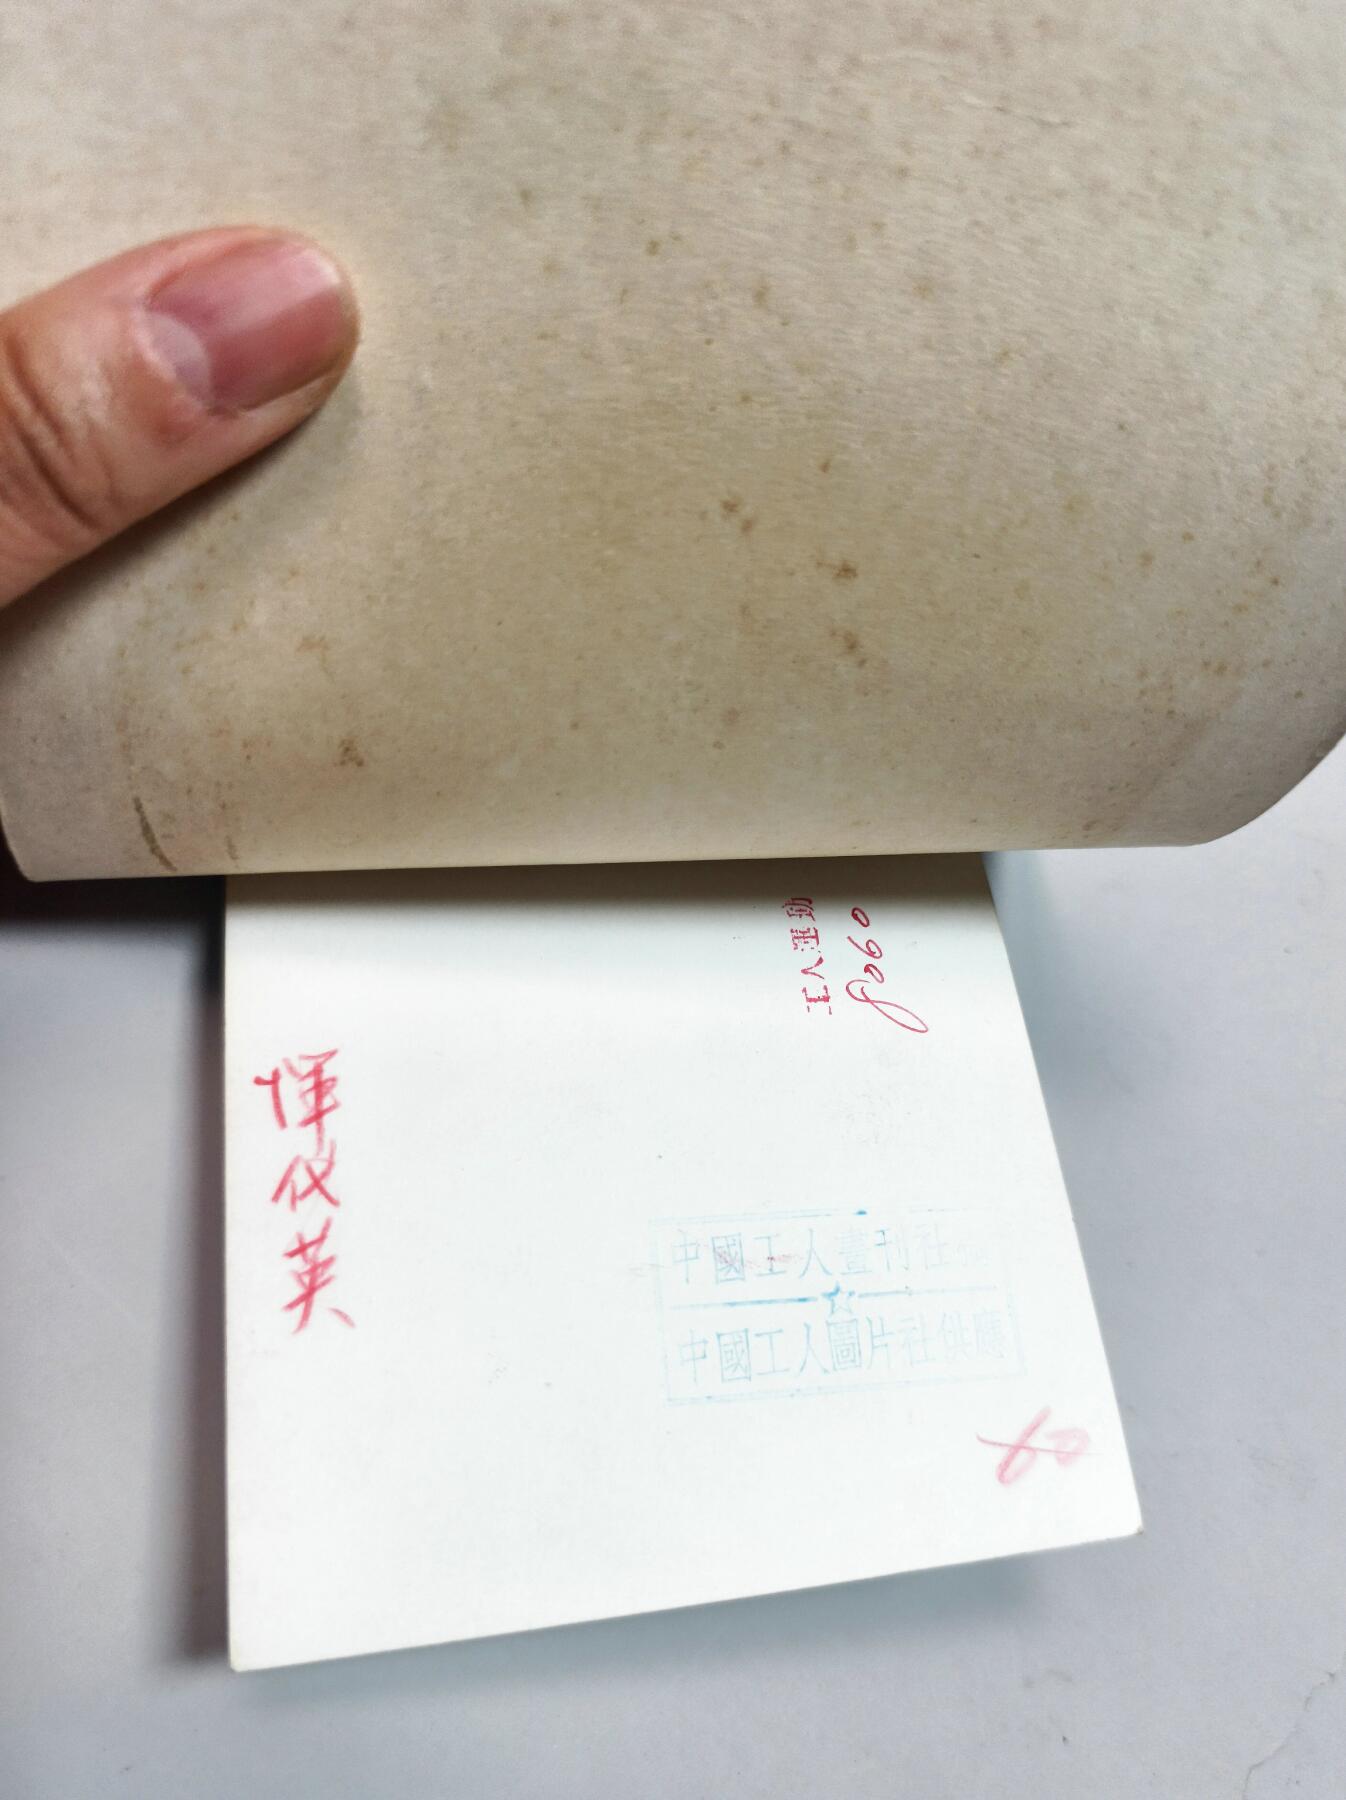 工人運動
8060
恽仪英
中國工人畫刊社
中國工人圖片社供應
60